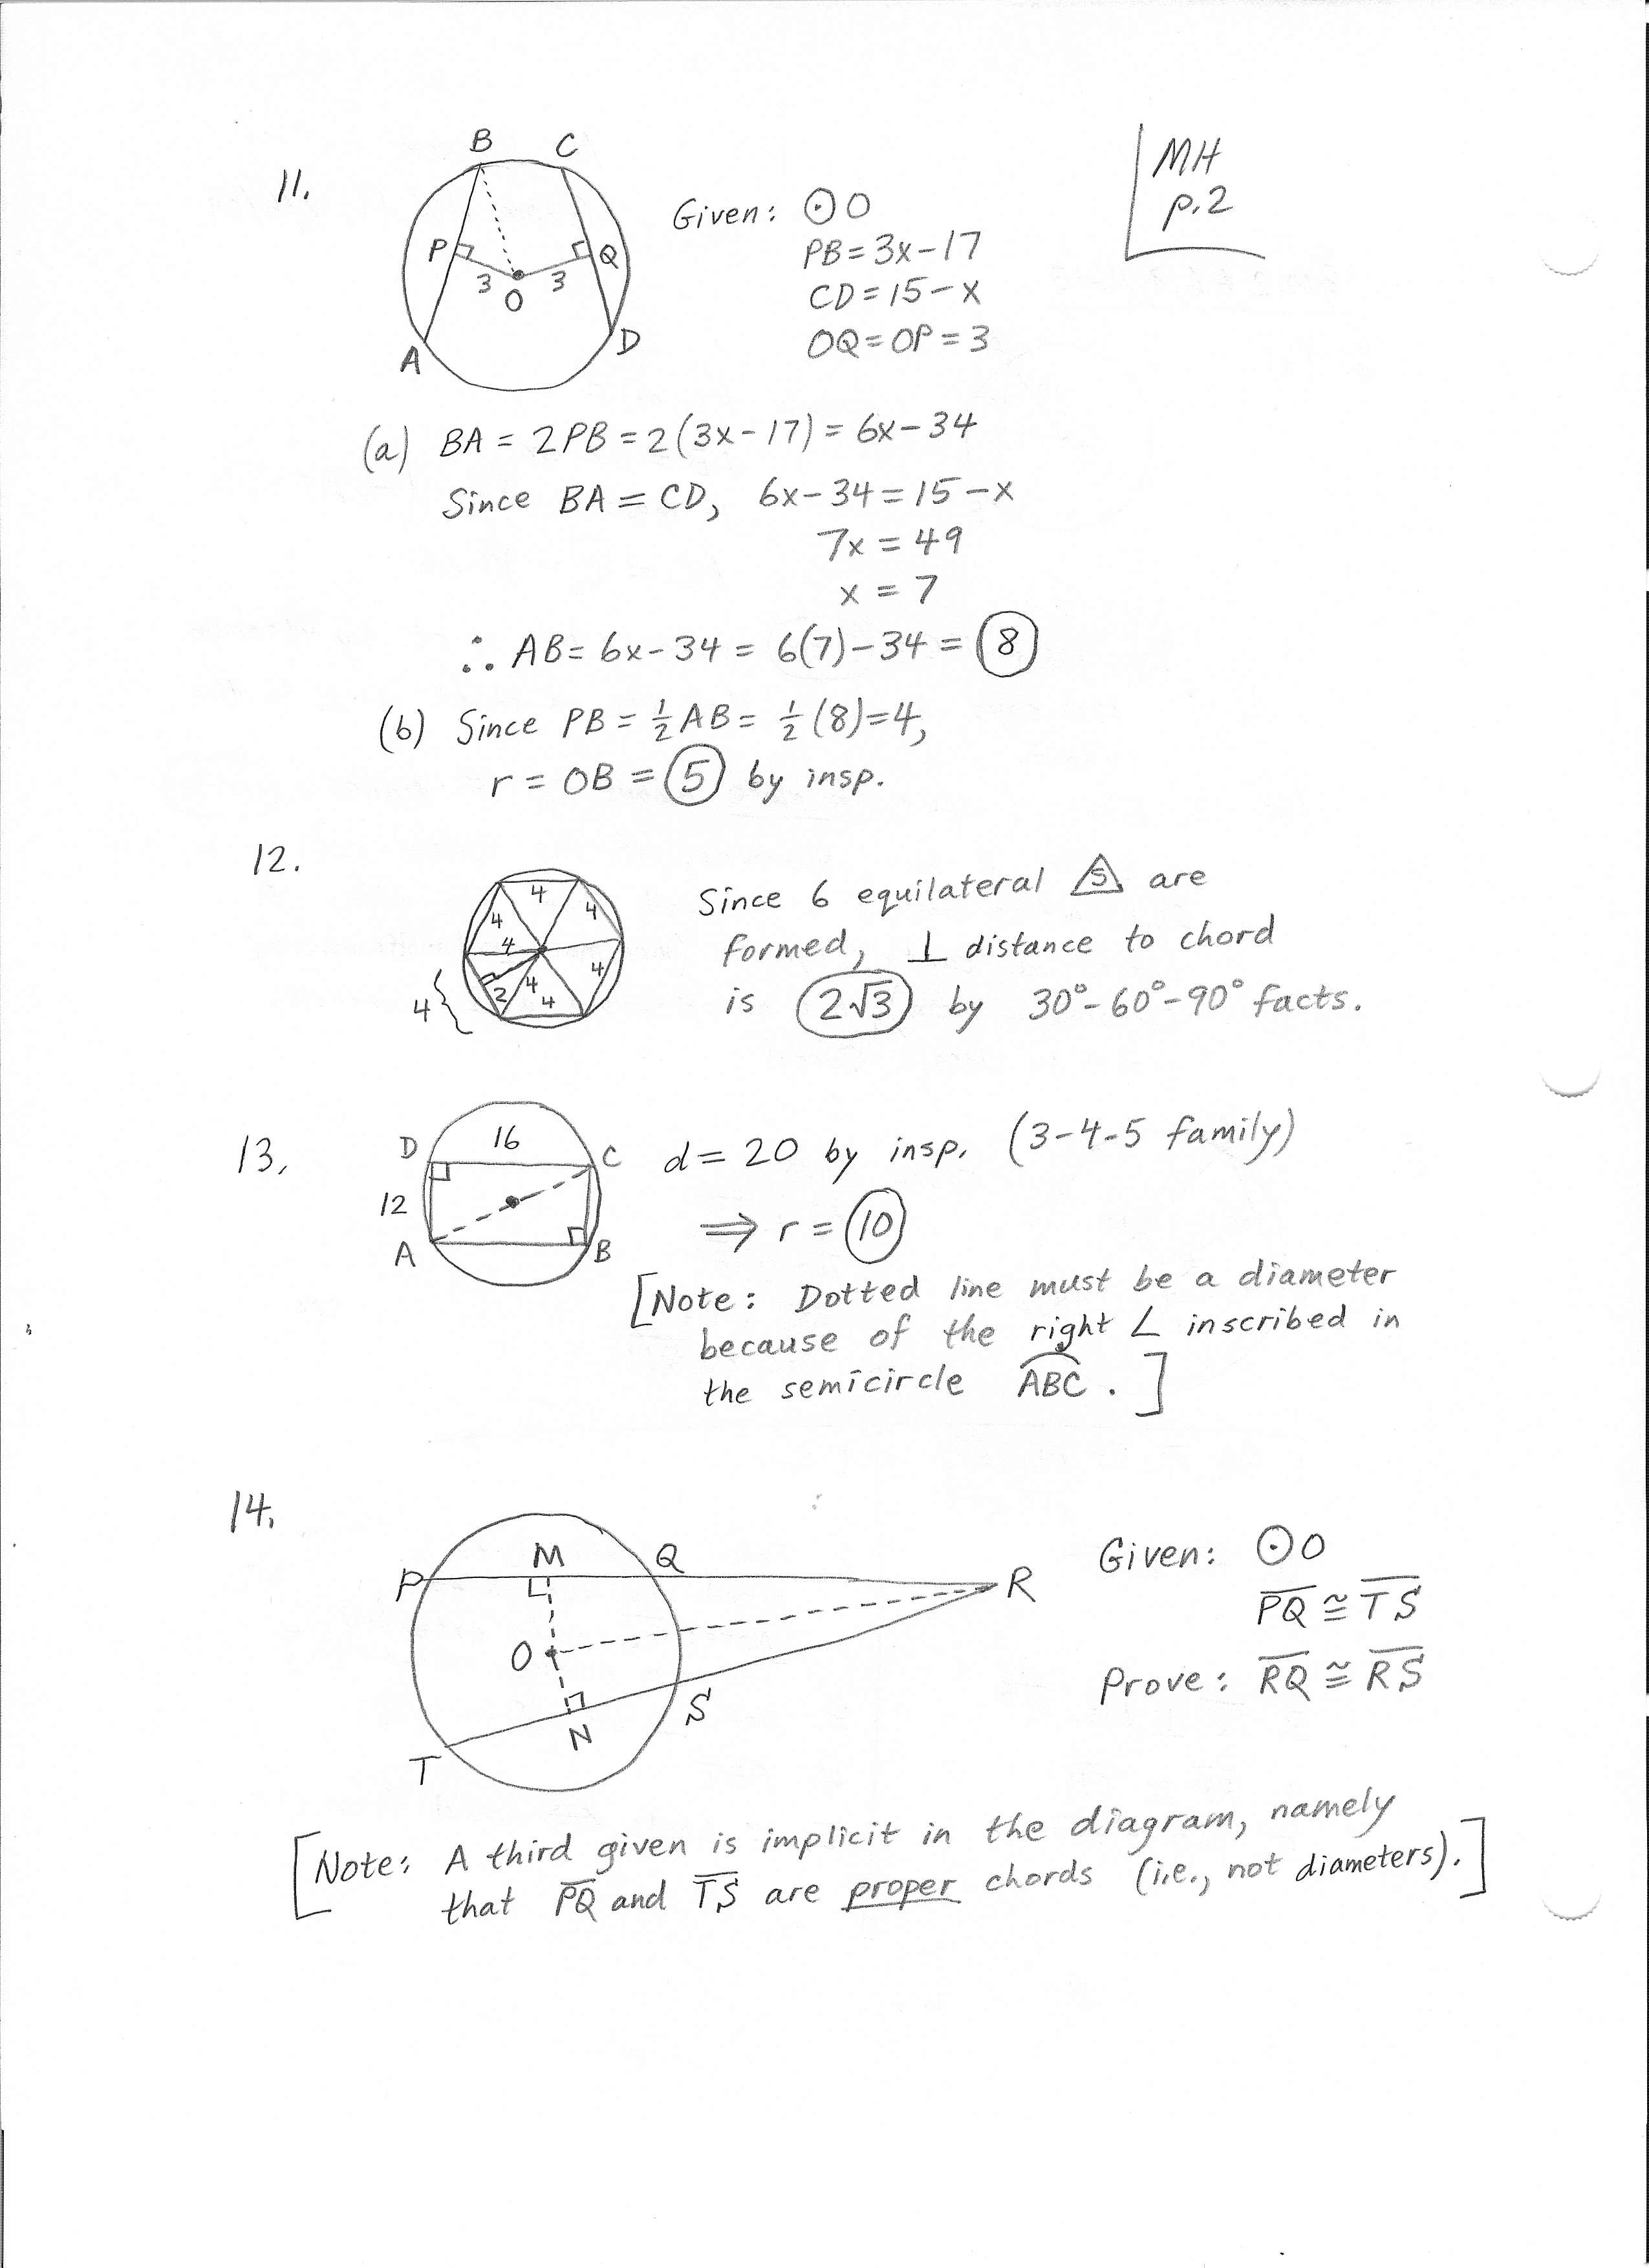 MH
p.2
11.
B C
P Q
3 3
O
A D
Given: ⊙O
PB = 3x - 17
CD = 15 - x
OQ = OP = 3
(a) BA = 2PB = 2(3x - 17) = 6x - 34
Since BA = CD, 6x - 34 = 15 - x
7x = 49
x = 7
∴ AB = 6x - 34 = 6(7) - 34 = 8
(b) Since PB = ½AB = ½(8) = 4,
r = OB = 5 by insp.
12.
4
4 4
4
4
4 2 4
4
Since 6 equilateral △s are
formed, ⊥ distance to chord
is 2√3 by 30°-60°-90° facts.
13.
D 16 C
12
A B
d = 20 by insp. (3-4-5 family)
⟹ r = 10
[Note: Dotted line must be a diameter
because of the right ∠ inscribed in
the semicircle ABC.]
14.
P M Q
R
O
N S
T
Given: ⊙O
PQ ≅ TS
Prove: RQ ≅ RS
[Note: A third given is implicit in the diagram, namely
that PQ and TS are proper chords (i.e., not diameters).]